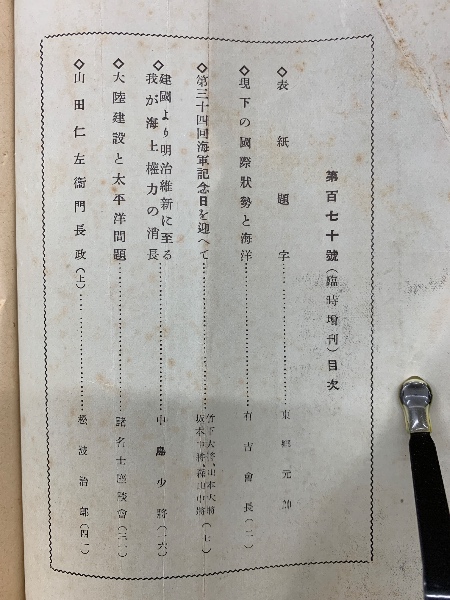 第百七十號(臨時增刊)目次
◇表紙題字……………東鄕元帥
◇現下の國際狀勢と海洋……………有吉會長(二)
◇第三十四回海軍記念日を迎へて……………竹下大將、山本大將
坂本中將、森山中將(七)
◇建國より明治維新に至る
我が海上權力の消長……………中島少將(一六)
◇大陸建設と太平洋問題……………諸名士座談會(三一)
◇山田仁左衞門長政(上)……………松波治郞(四一)